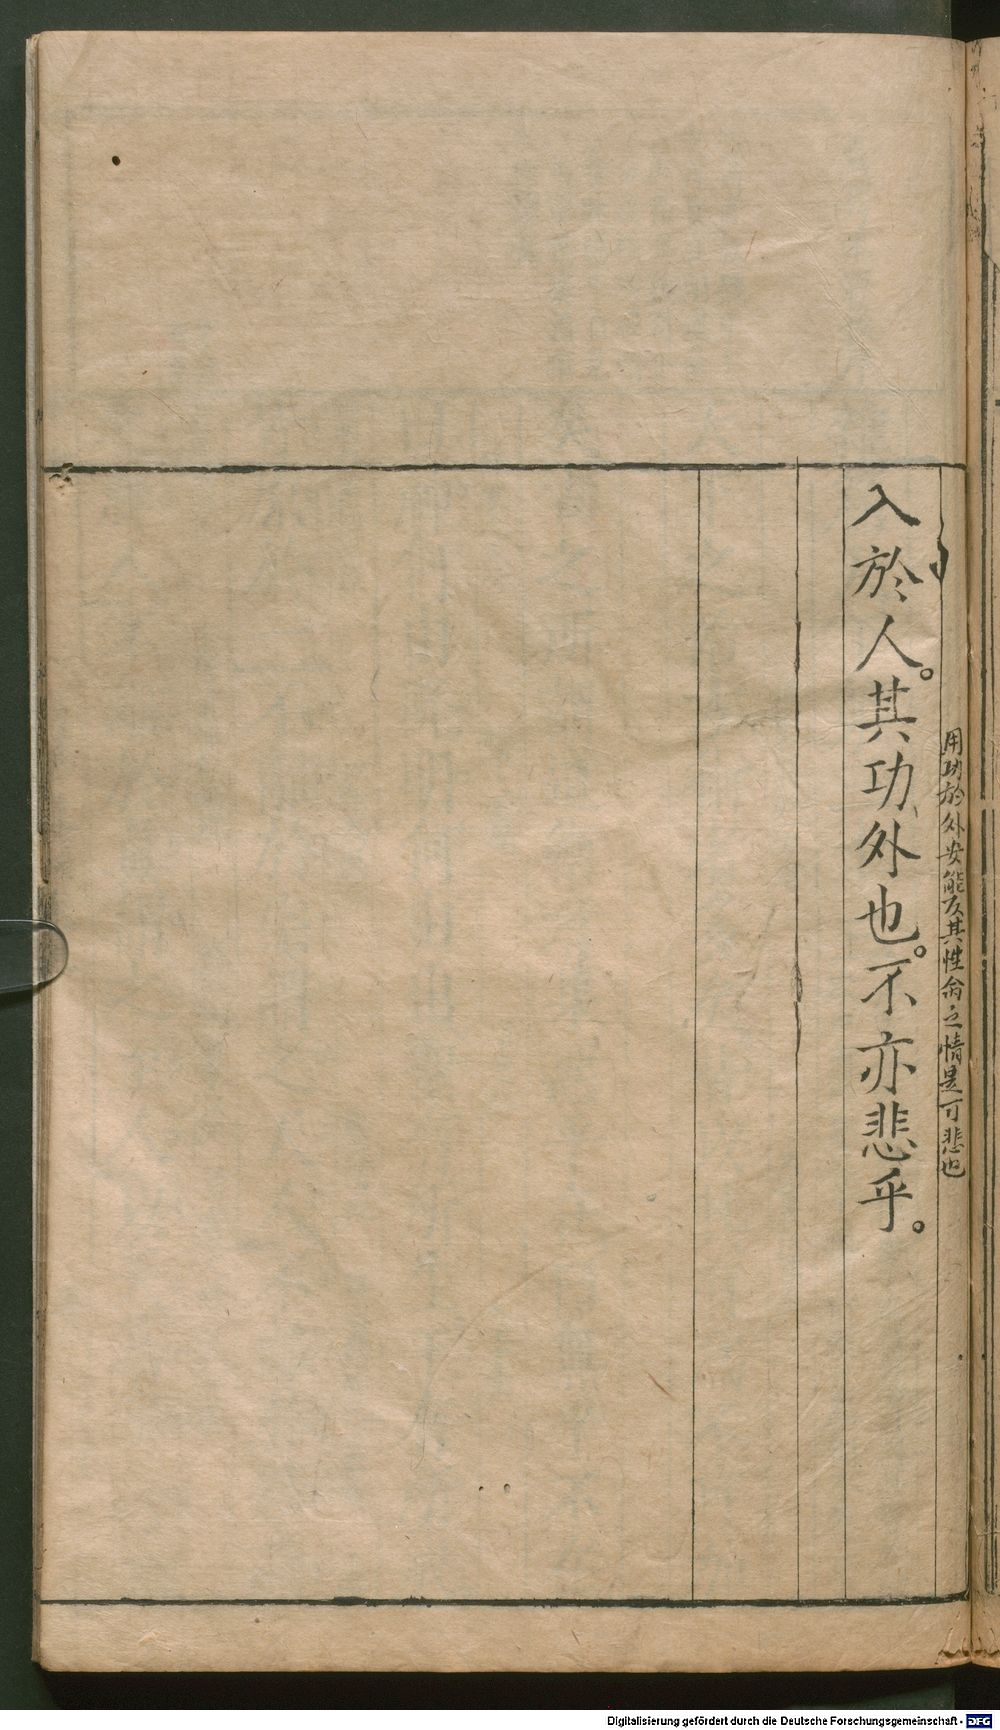 用功於外安能反其性命之情是可悲也
入於人。其功外也。不亦悲乎。
Digitalisierung gefördert durch die Deutsche Forschungsgemeinschaft - DFG